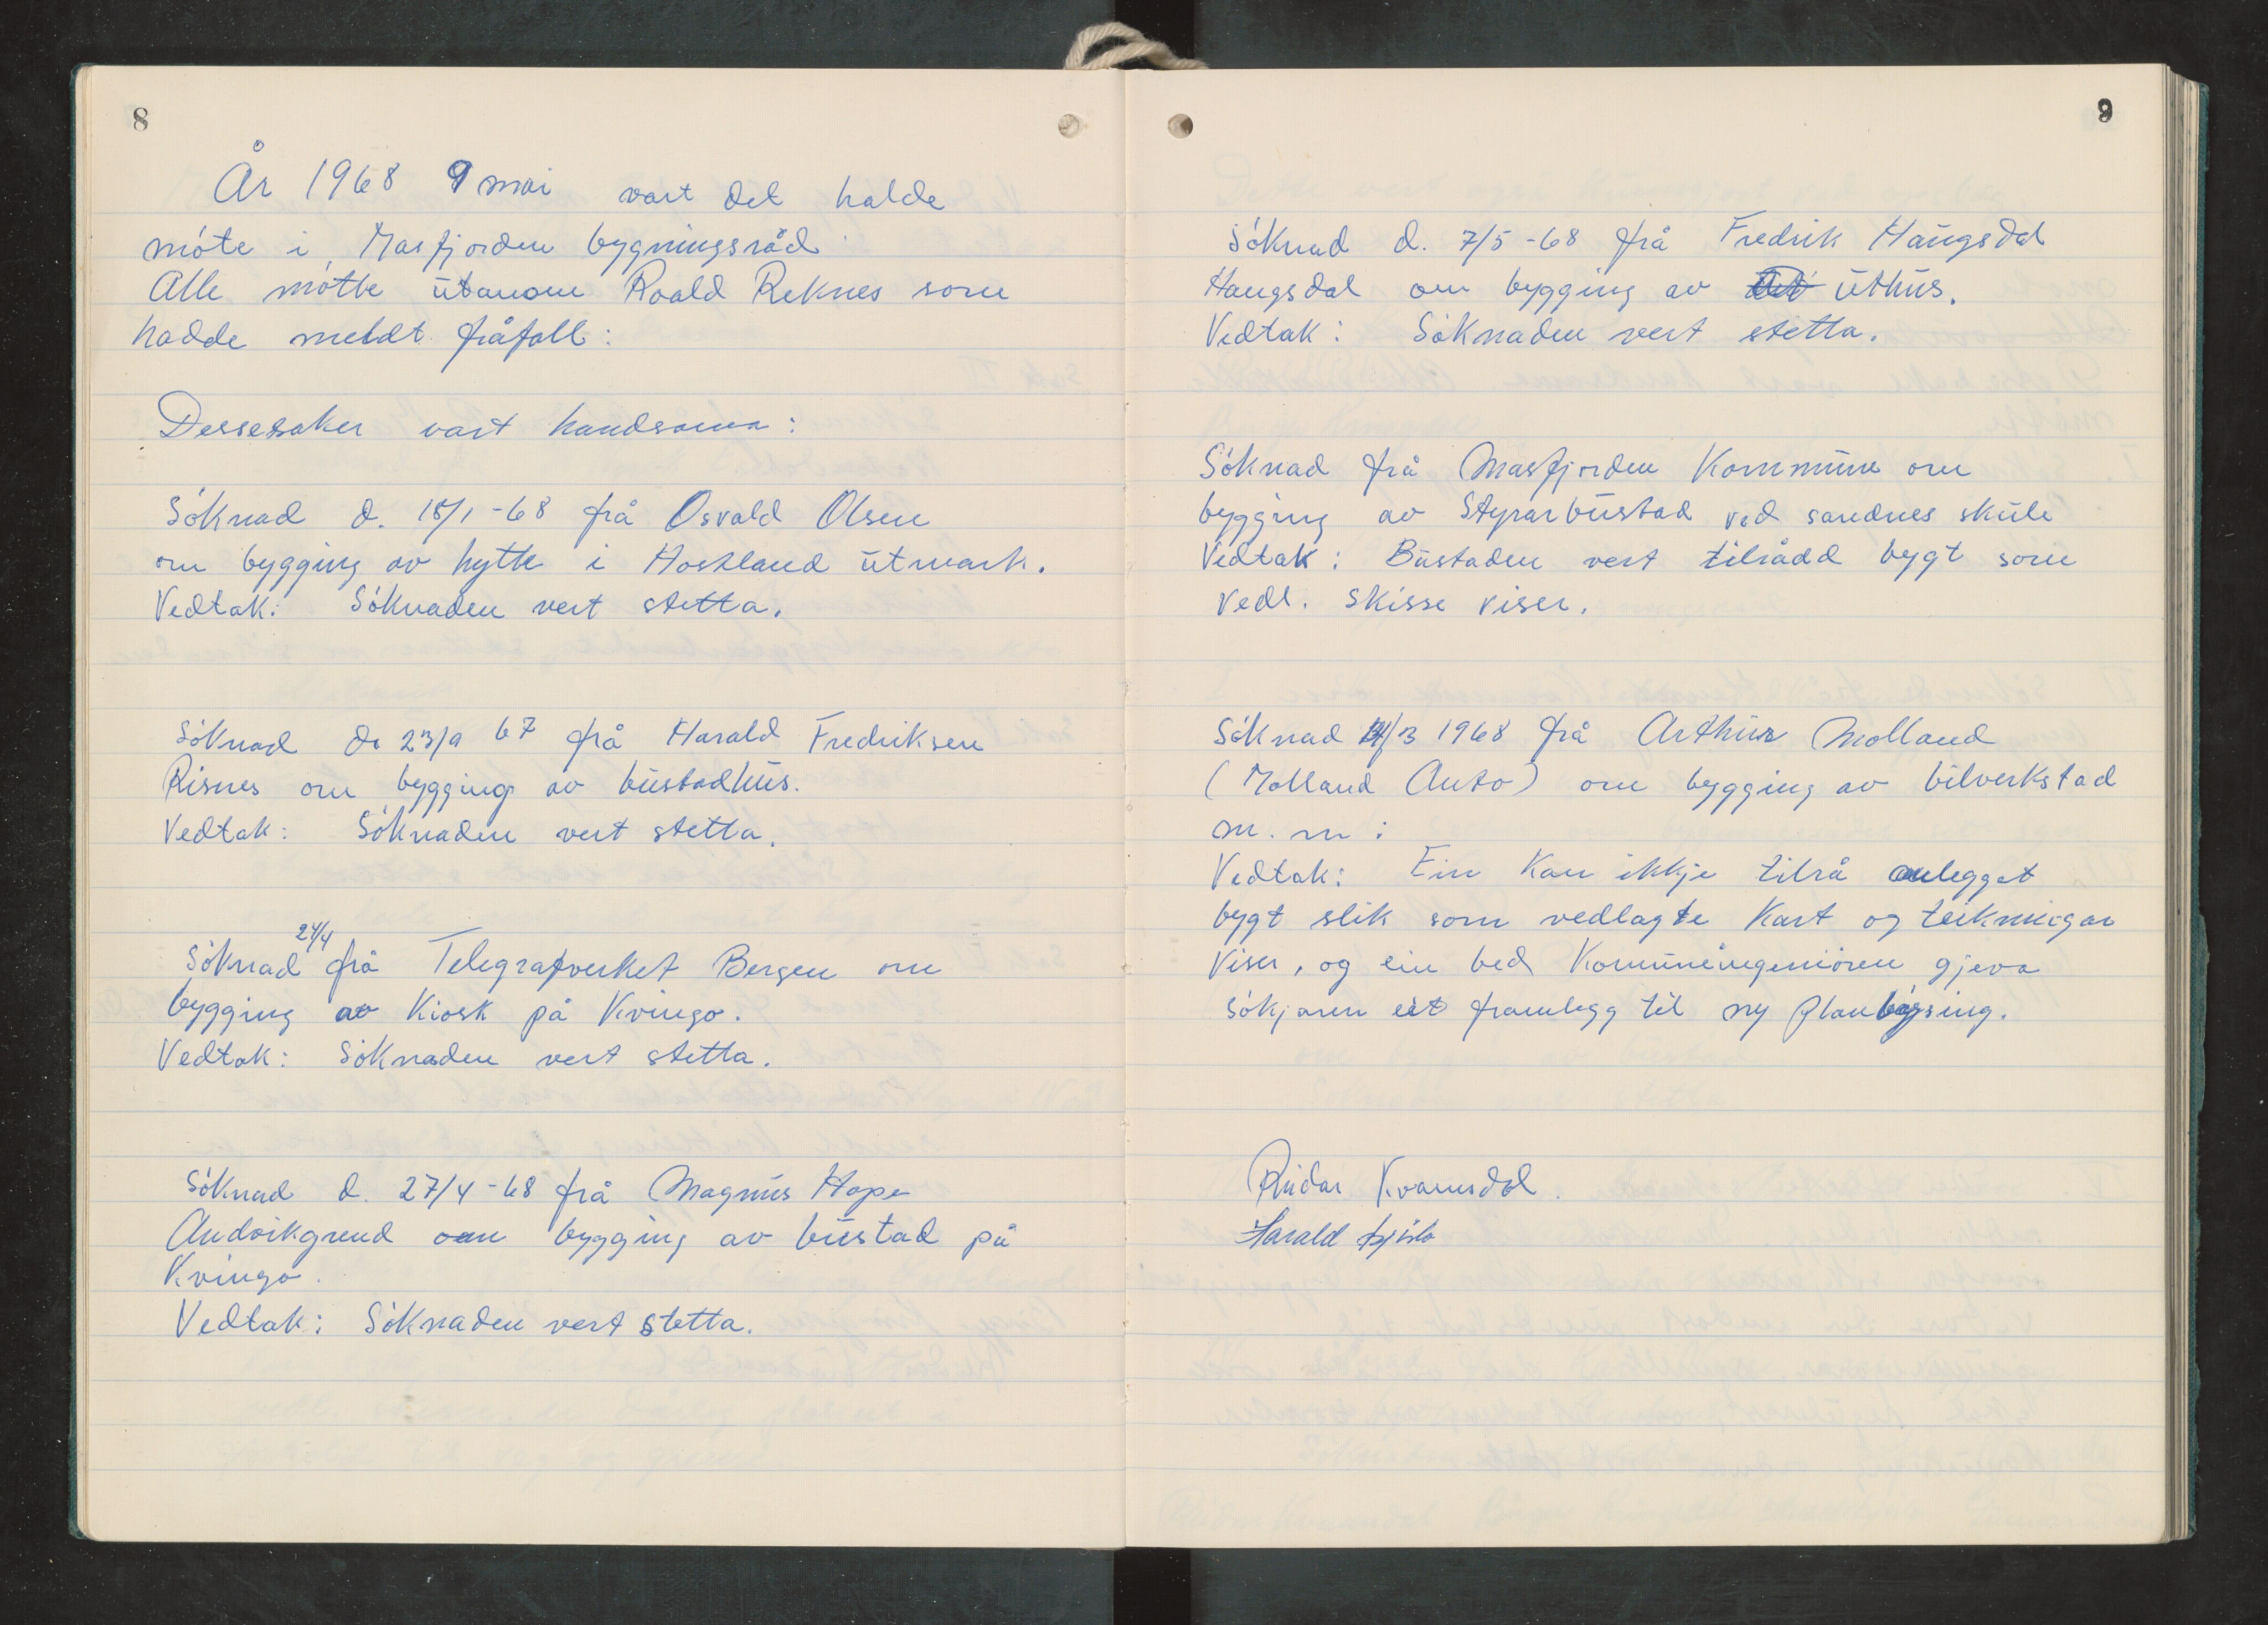 8
År 1968 9 mai vart det halde
møte i Masfjorden bygningsråd
Alle møtte utanom Roald Reknes som
hadde meldt fråfall:
Dessesaker vart handsama:
Søknad d. 18/1-68 frå Osvald Olsen
om bygging av hytte i Hoskland utmark.
Vedtak: Søknaden vert stetta.
Søknad d. 23/9 67 frå Harald Fredriksen
Risnes om bygging av bustadhus.
Vedtak: Søknaden vert stetta.
24/4
Søknad frå Telegrafverket Bergen om
bygging av Kiosk på Kvingo.
Vedtak: Søknaden vert stetta.
Søknad d. 27/4-68 frå Magnus Hope
Andvikgrend om bygging av bustad på
Kvingo.
Vedtak: Søknaden vert stetta.
9
Søknad d. 7/5-68 frå Fredrik Haugsdal
Haugsdal om bygging av uthus.
Vedtak: Søknaden vert stetta.
Søknad frå Masfjorden Kommune om
bygging av Styrarbustad ved sandnes skule
Vedtak: Bustaden vert tilrådd bygt som
vedl. skisse viser.
Søknad /3 1968 frå Arthur Molland
(Molland Auto) om bygging av bilverkstad
m. m:
Vedtak: Ein kan ikkje tilrå anlegget
bygt slik som vedlagte Kart og teikningar
viser, og ein bed Kommuneingeniøren gjeva
søkjaren eit framlegg til ny planløysing.
Reidar Kvamsdal.
Harald